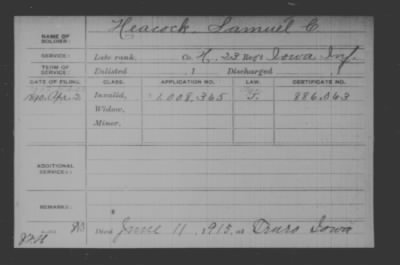 NAME OF SOLDIER: Heacock, Samuel C
SERVICE: Late rank, Co. H, 23 Reg't Iowa Inf.
TERM OF SERVICE: Enlisted 1 Discharged
DATE OF FILING. CLASS. APPLICATION NO. LAW. CERTIFICATE NO.
Apr. 2 Invalid, 1.008.365 886.063
Widow,
Minor,
ADDITIONAL SERVICES:
REMARKS:
Died June 11, 1915, at Truro Iowa